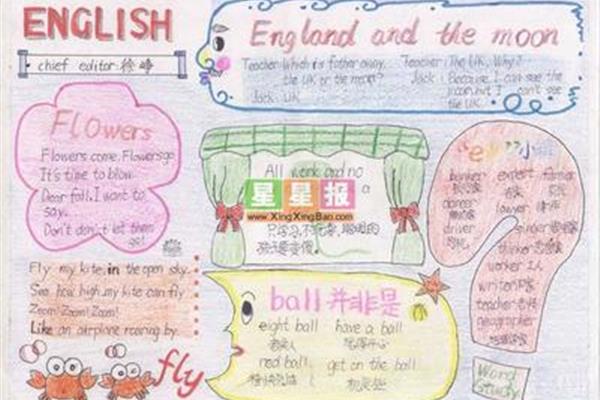 ENGLISH
chief editor:徐峰
England and the moon
Teacher: Which is father away,
the UK or the moon?
Jack: UK
Teacher: The UK, Why?
Jack: Because I can see the
moon, but I can't see
the UK.
Flowers
Flowers come. Flowers go.
It's time to blow.
Dear fall, I want to
say.
Don't don't let them
go!
All work and no
a
星星报
www.XingXingBao.com
只学习,不玩耍,聪明的
孩子要变傻。
banker
expert
farmer
dancer
lawyer
driver
司机
thinker
worker 工人
writer 作家
teacher 老师
geographer
Fly my kite in the open sky.
See how high my kite can fly
Zoom! Zoom! Zoom!
Like an airplane roaring by.
fly
ball 并非是
eight ball have a ball
red ball get on the ball
Word
Study